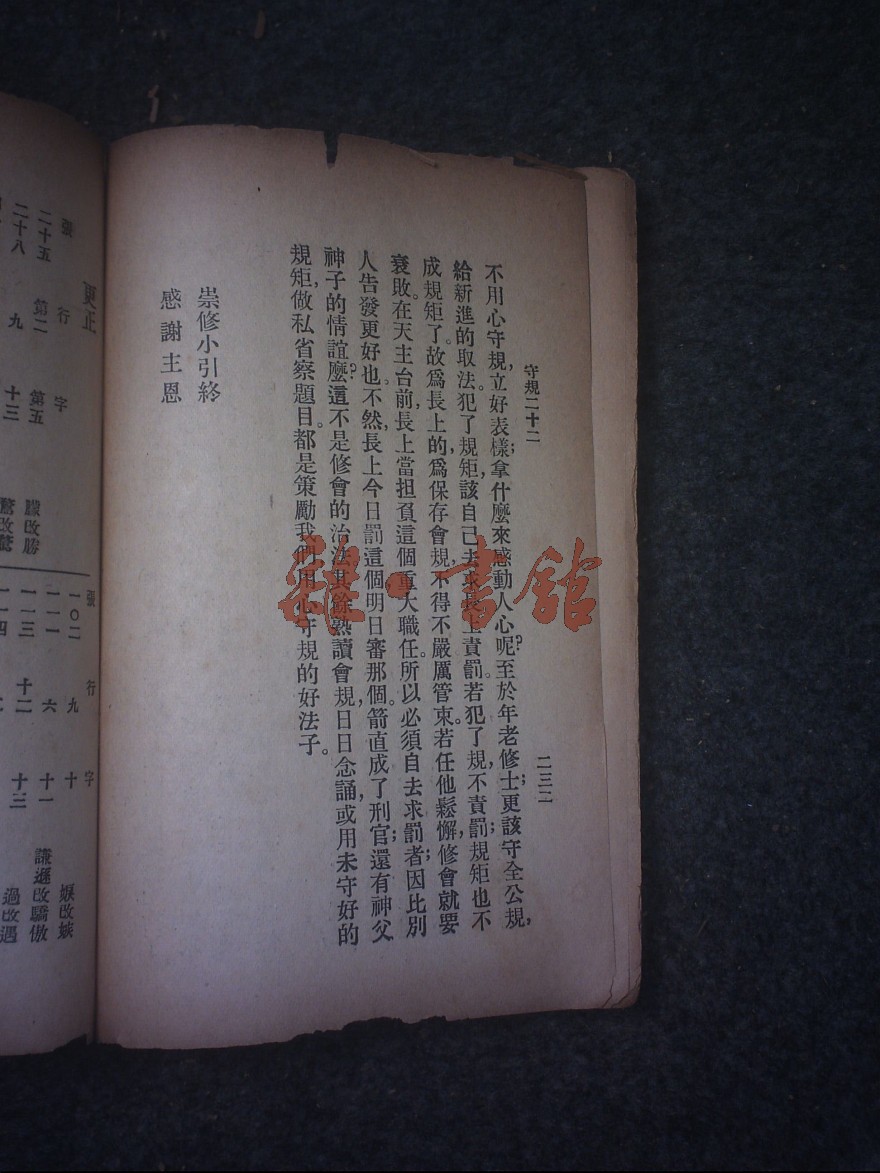 守規二十二
二三二
不用心守規,立好表樣;拿什麼來感動人心呢?至於年老修士;更該守全公規,
給新進的取法。犯了規矩,該自己去求長上責罰。若犯了規,不責罰;規矩也不
成規矩了。故爲長上的,爲保存會規,不得不嚴厲管束。若任他鬆懈,修會就要
衰敗。在天主台前,長上當担負這個重大職任。所以必須自去求罰者;因比別
人告發更好也。不然,長上今日罰這個,明日審那個。箭直成了刑官,還有神父
神子的情誼麼?這不是修會的治法。其餘熟讀會規,日日念誦,或用未守好的
規矩,做私省察題目。都是策勵我們用心守規的好法子。
崇修小引終
感謝主恩
雜·書館
更正
張 行 字
二十五 第二 第五 朦改勝
二十八 九 十三
張 行 字
一〇二 九 十 娛改嫉
一一一 六 十一 謙遜改驕傲
一一三 十二 十三 過改遇